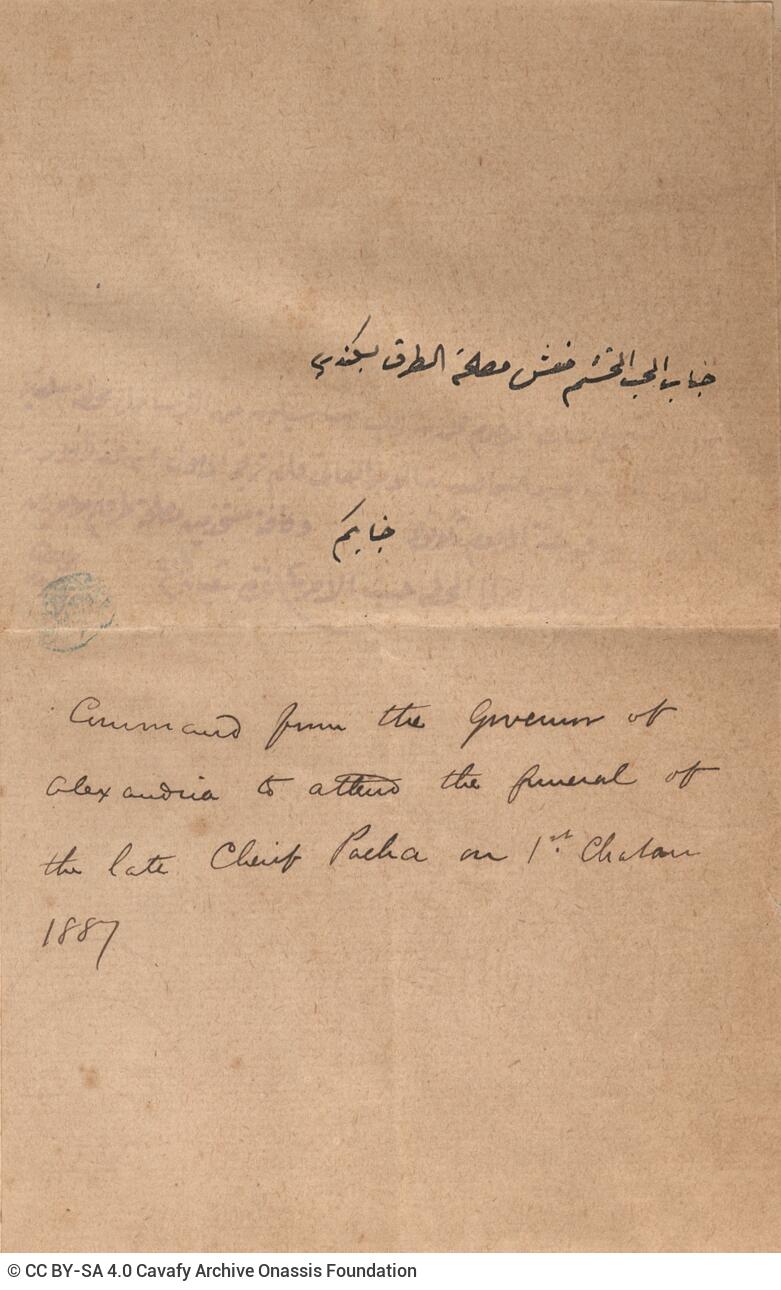 جناب المحب المحتشم مفتش مصلحة الطرق بسكندريه
جنابكم
Command from the Governor of
Alexandria to attend the funeral of
the late Cherif Pacha on 1st. Chaban
1887
© CC BY-SA 4.0 Cavafy Archive Onassis Foundation